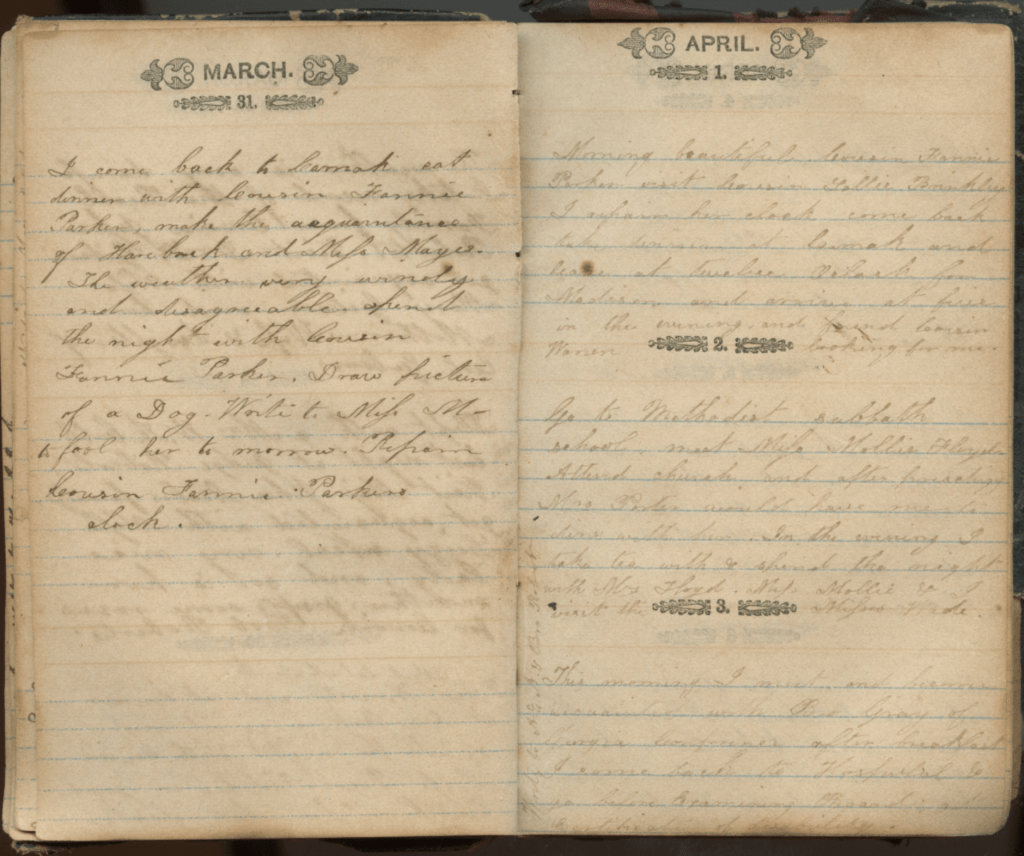 MARCH.
31.
I come back to Camak eat
dinner with Cousin Fannie
Parker, make the acquaintance
of and Miss Mayes.
The weather very windy
and disagreeable. spend
the night with Cousin
Fannie Parker. Draw picture
of a Dog. Write to Miss M—
to fool her to morrow. Repair
Cousin Fannie Parkers
clock.
APRIL.
1.
Morning beautiful. Cousin Fannie
Parker visit Cousin Brinkley
I her clock come back
take at Camak and
leave at twelve Oclock for
Madison and arrive at five
in the evening, and found Cousin
Warren looking for me.
2.
Go to Methodist sabbath
school, meet Miss Mollie Floyd
Attend church, and after preaching
Mrs Porter would have me to
dine with her. In the evening I
take tea with & spend the night
with Mrs Floyd. Mollie & I
visit the Misses Wade.
3.
This morning I meet and become
acquainted with Gray of
Georgia after breakfast
I come back to Hospital &
go before Examining Board
of